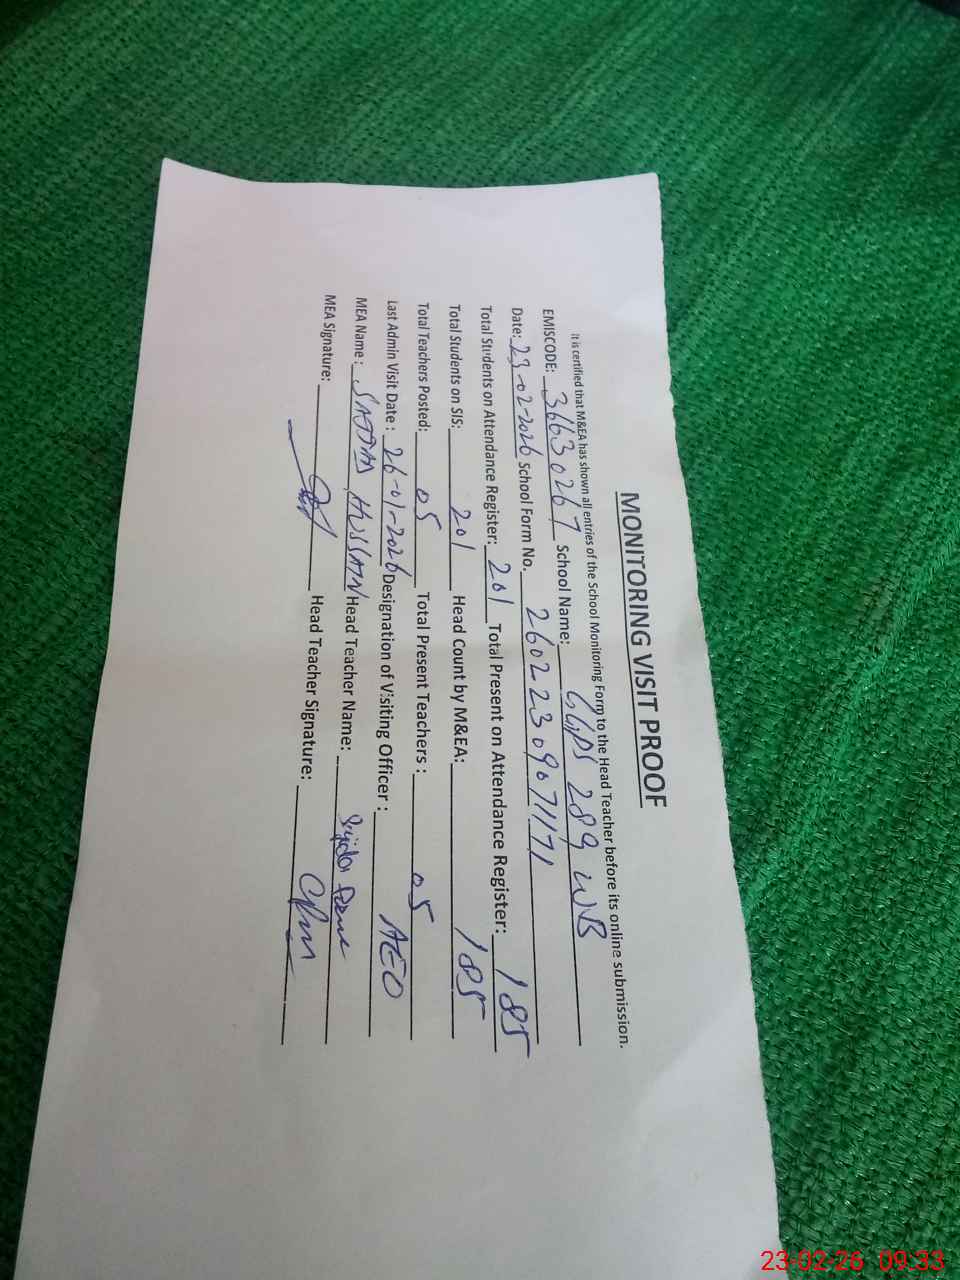 MONITORING VISIT PROOF
It is certified that M&EA has shown all entries of the School Monitoring Form to the Head Teacher before its online submission.
EMISCODE: 36630267 School Name: GGPS 289 WB
Date: 23-02-2026 School Form No. 26022309071171
Total Students on Attendance Register: 201 Total Present on Attendance Register: 185
Total Students on SIS: 201 Head Count by M&EA: 185
Total Teachers Posted: 05 Total Present Teachers : 05
Last Admin Visit Date : 26-01-2026 Designation of Visiting Officer : AEO
MEA Name : SADDAM HUSSAIN Head Teacher Name: Sajida
MEA Signature: Head Teacher Signature:
23-02-26 09:33